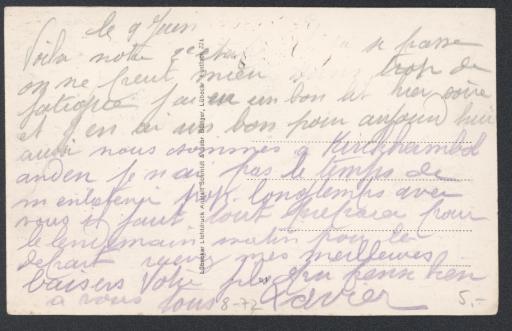 le 9 Juin
Voila notre se passe
on ne peut mieu trop de
fatigue j'ai eu un bon lit hier soire
et j en ai un bon pour aujourd hui
aussi nous sommes a
anden je n ai pas le temps de
m entretenir plus longtemps avec
vous il faut tout preparer pour
le lendemain matin pour le
depart recever mes meilleures
baisers Votre fils qui pense bien
a vous tous Xavier
8-72
5,-
Lübecker Lichtdruck